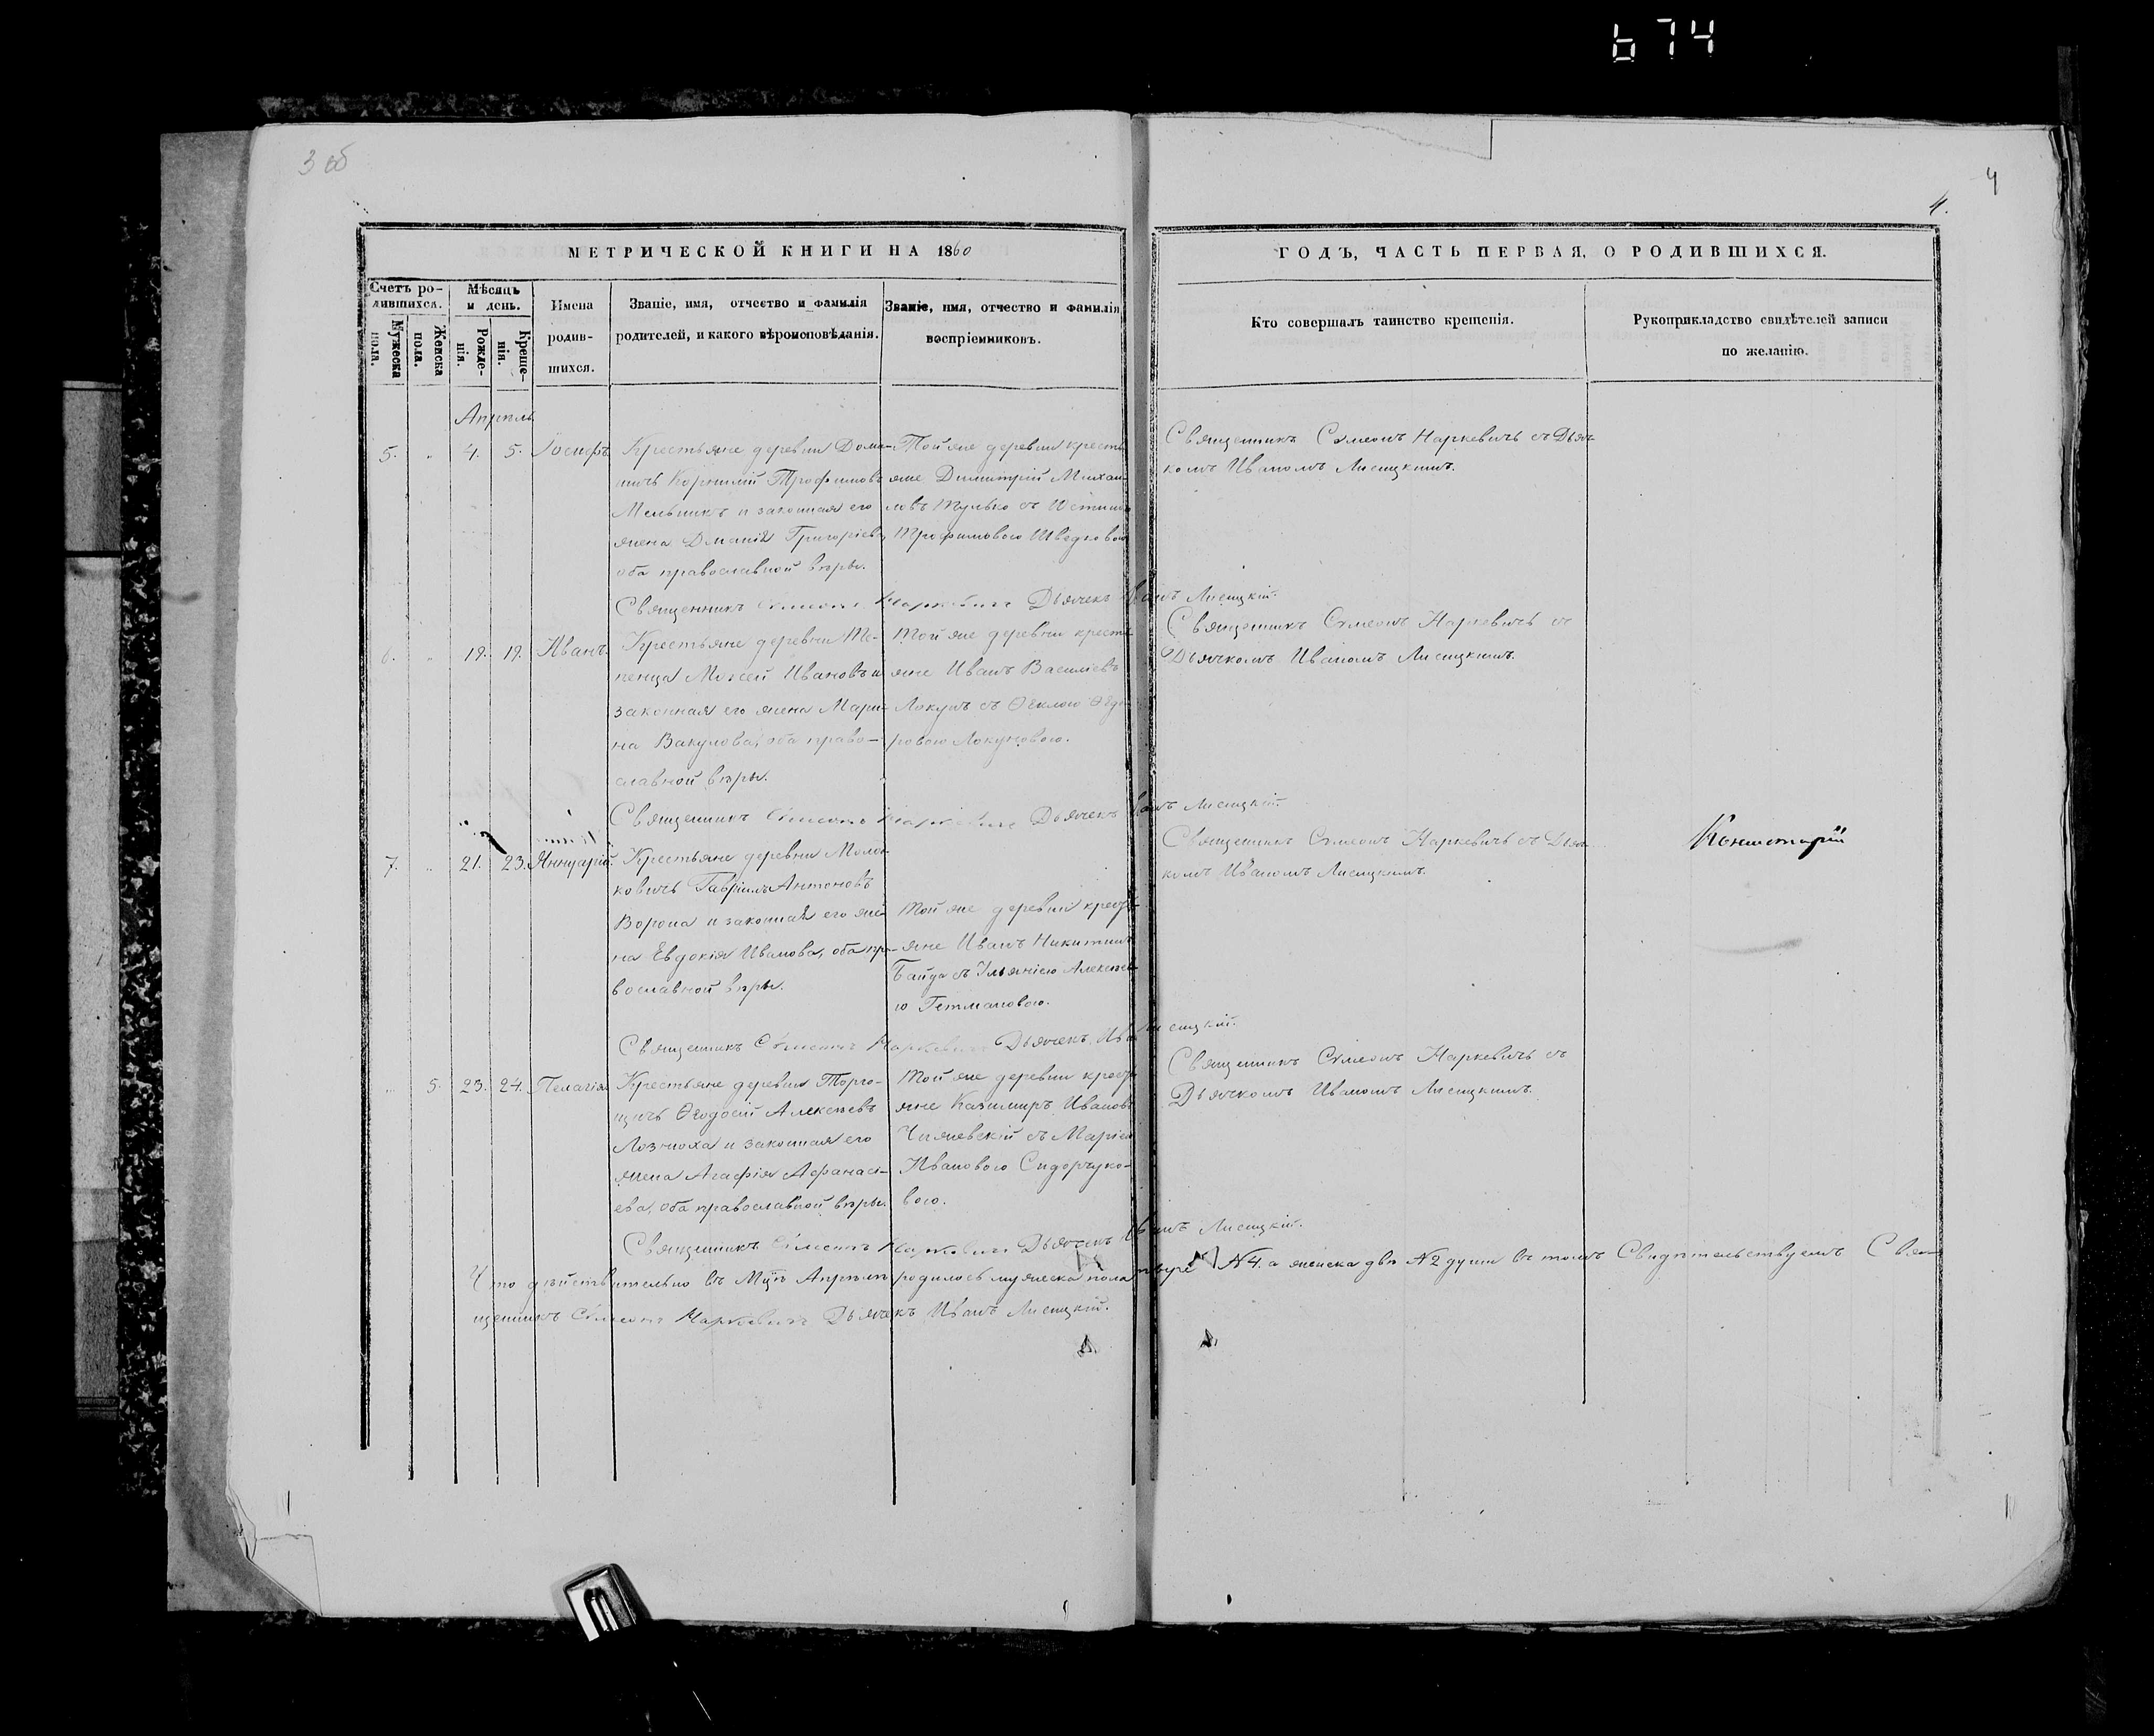 674
3 об
4
4.
МЕТРИЧЕСКОЙ КНИГИ НА 1860
ГОДЪ, ЧАСТЬ ПЕРВАЯ, О РОДИВШИХСЯ.
Счетъ ро-
дившихся.
Мужеска
пола.
Женска
пола.
Мѣсяцъ
и день.
Рожде-
нія.
Креще-
нія.
Имена
родив-
шихся.
Званіе, имя, отчество и фамилія
родителей, и какого вѣроисповѣданія.
Званіе, имя, отчество и фамилія
воспріемниковъ.
Кто совершалъ таинство крещенія.
Рукоприкладство свидѣтелей записи
по желанію.
Апрѣль
5. " 4. 5. Іосифъ
Крестьяне деревни Дома-
ничъ Корнилій Трофимовъ
Мельникъ и законная его
жена Григоріева
оба православной вѣры.
Той же деревни кресть
яне Димитрій Михаи-
ловъ Мулько съ
Трофимовою Шведковою
Священникъ Сѵмеонъ Наркевичъ съ Дьяч-
комъ Иваномъ Лисицкимъ.
Священникъ Сѵмеонъ Наркевичъ Дьячекъ Иванъ Лисицкій.
6. " 19. 19. Иванъ.
Крестьяне деревни Те-
пенца Моѵсей Ивановъ и
законная его жена Мари-
на Вакулова, оба право-
славной вѣры.
Той же деревни кресть
яне Иванъ Василіевъ
Локунъ съ Ѳеклою Ѳедо
ровою Локуновою.
Священникъ Сѵмеонъ Наркевичъ съ
Дьячкомъ Иваномъ Лисицкимъ.
Священникъ Сѵмеонъ Наркевичъ Дьячекъ Иванъ Лисицкій.
7. " 21. 23. Яннуарій
Крестьяне деревни Молот
ковичъ Гавріилъ Антоновъ
Ворона и законная его же-
на Евдокія Иванова, оба пра-
вославной вѣры.
Той же деревни кресть
яне Иванъ Никитинъ
Байда съ Ульяніею Алексѣев
ю Гетмановою.
Священникъ Сѵмеонъ Наркевичъ съ Дьяч-
комъ Иваномъ Лисицкимъ.
Священникъ Сѵмеонъ Наркевичъ Дьячекъ Ив Лисицкій.
" 5. 23. 24. Пелагія
Крестьяне деревни Торго-
щичъ Ѳеодосій Алексѣевъ
Лозноха и законная его
жена Агафія Афанась-
ева, оба православной вѣры.
Той же деревни кресть
яне Казимиръ Ивановъ
Чижевскій съ Маріею
Ивановою Сидорчуко-
вою.
Священникъ Сѵмеонъ Наркевичъ съ
Дьячкомъ Иваномъ Лисицкимъ.
Священникъ Сѵмеонъ Наркевичъ Дьячекъ Иванъ Лисицкій.
Что дѣйствительно въ Мцѣ Апрѣлѣ родилось мужеска пола N 4. а женска двѣ N 2 души въ томъ Свидѣтельствуемъ Свя-
щенникъ Сѵмеонъ Наркевичъ Дьячекъ Иванъ Лисицкій.